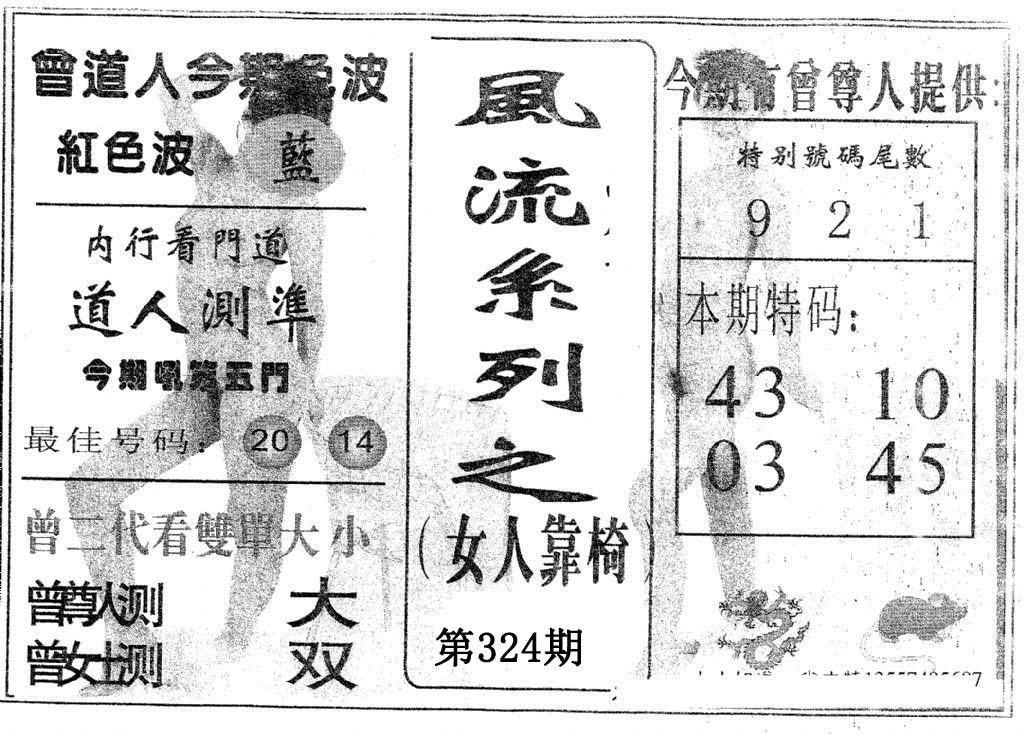 曾道人今期色波
紅色波 藍
内行看門道
道人測準
今期吼第五門
最佳号码: 20 14
曾二代看雙單大小
曾尊人测 大
曾女士测 双
風流系列之
(女人靠椅)
第324期
今期有曾尊人提供:
特别號碼尾數
9 2 1
本期特码:
43 10
03 45